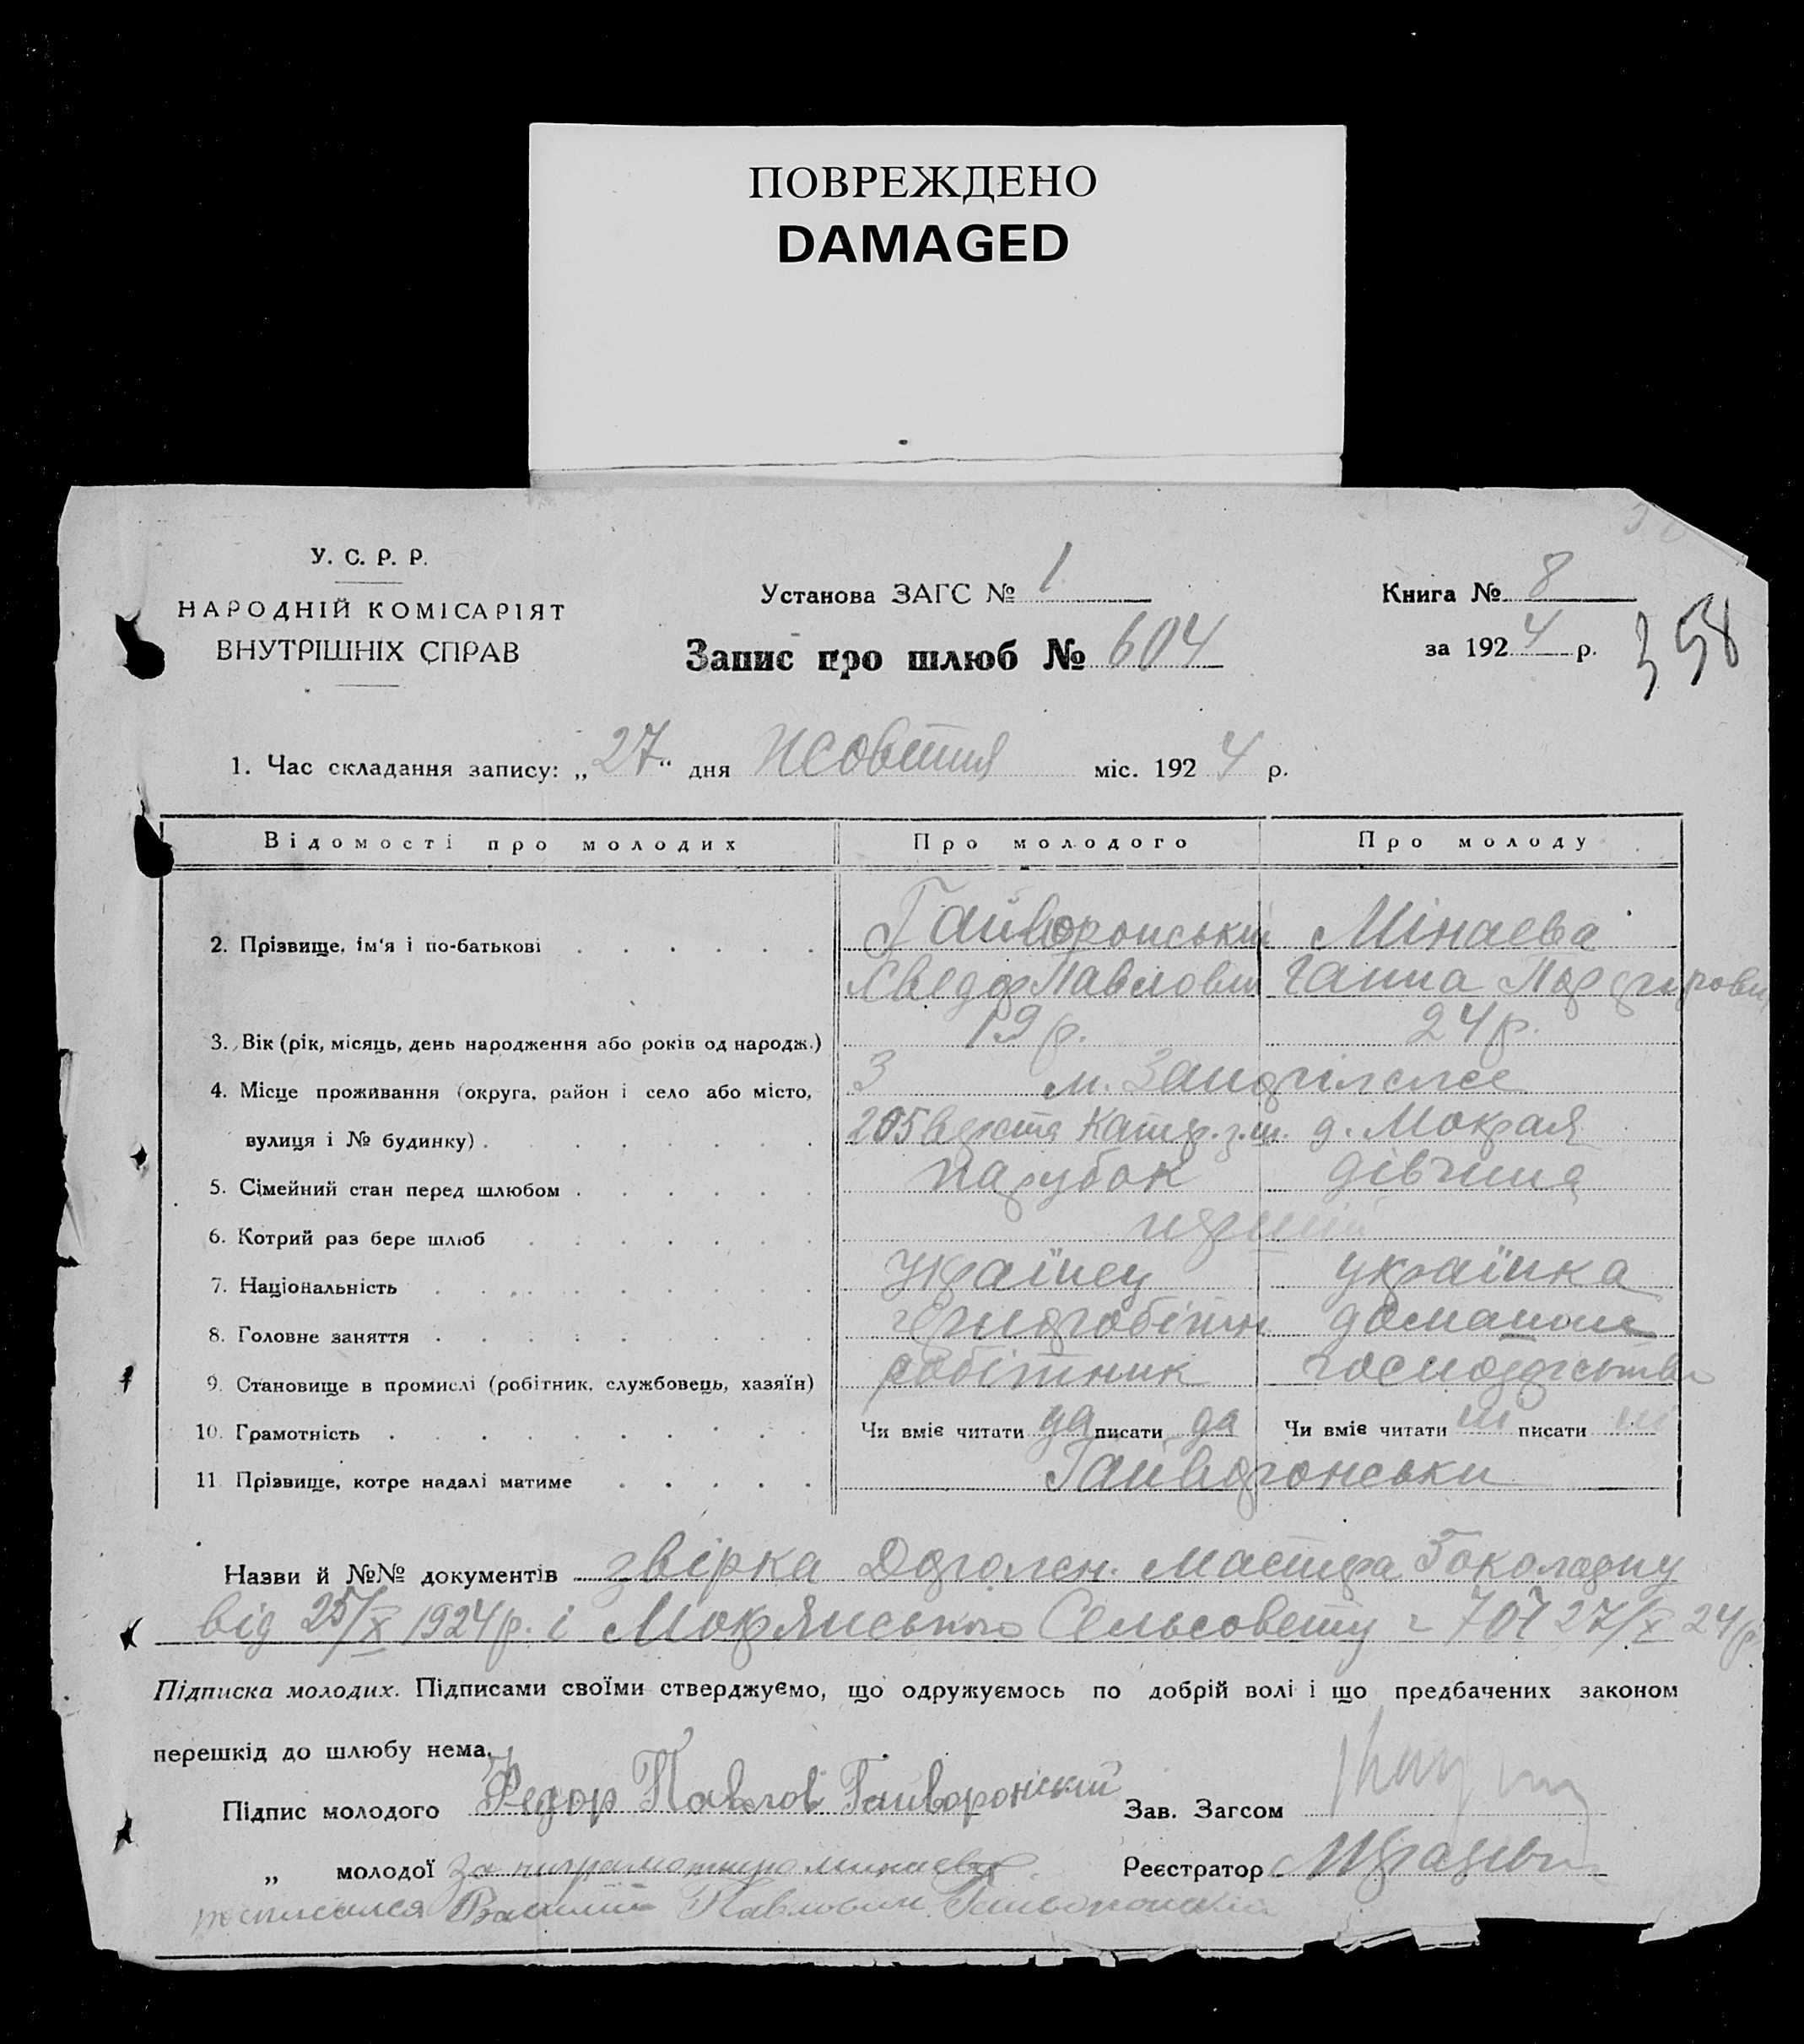 ПОВРЕЖДЕНО
DAMAGED
У. С. Р. Р.
НАРОДНІЙ КОМІСАРІЯТ
ВНУТРІШНІХ СПРАВ
Установа ЗАГС № 1
Запис про шлюб № 604
Книга № 8
за 1924 р.
358
1. Час складання запису: „27“ дня Жовтня міс. 1924 р.
Відомості про молодих Про молодого Про молоду
2. Прізвище, ім'я і по-батькові Гайворонський Мінаєва
Павлович Ганна
3. Вік (рік, місяць, день народження або років од народж.) 19 р. 24 р.
4. Місце проживання (округа, район і село або місто, З м. Запоріжжє
вулиця і № будинку) 205 верста Катер. з.ш. д. Мокрая
5. Сімейний стан перед шлюбом парубок дівчина
6. Котрий раз бере шлюб перший
7. Національність Українец українка
8. Головне заняття домашнє
9. Становище в промислі (робітник, службовець, хазяїн) робітник господарство
10. Грамотність Чи вміє читати да писати да Чи вміє читати ні писати ні
11. Прізвище, котре надалі матиме Гайворонськи
Назви й №№ документів звірка
від 25/X 1924 р. і Мокрянського Сельсовету 27/X 24 р
Підписка молодих. Підписами своїми стверджуємо, що одружуємось по добрій волі і що предбачених законом
перешкід до шлюбу нема.
Підпис молодого Федор Павлов Гайворонский Зав. Загсом
„ молодої за Реєстратор
росписался Василий Павлович Гайворонский